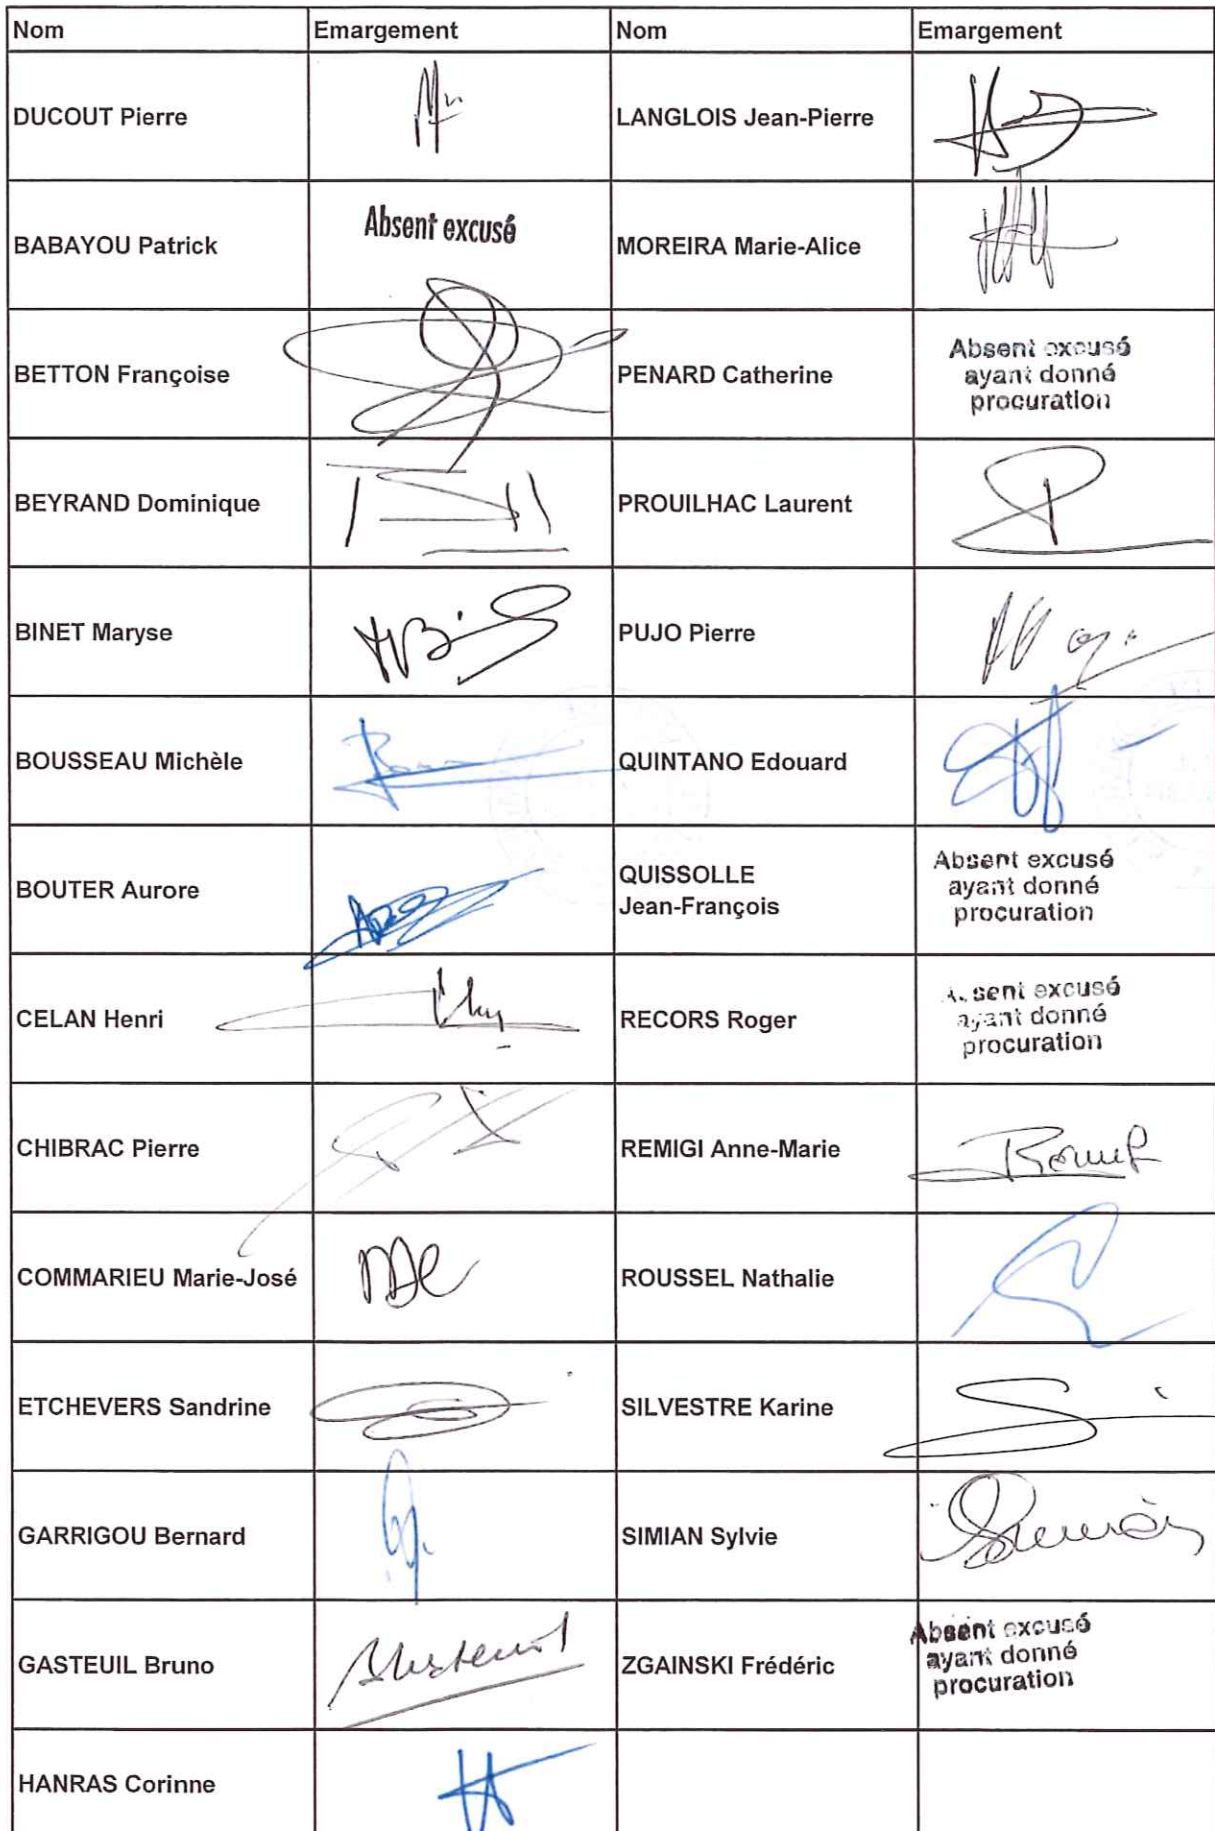 Nom Emargement Nom Emargement
DUCOUT Pierre LANGLOIS Jean-Pierre
BABAYOU Patrick Absent excusé MOREIRA Marie-Alice
BETTON Françoise PENARD Catherine Absent excusé
ayant donné
procuration
BEYRAND Dominique PROUILHAC Laurent
BINET Maryse PUJO Pierre
BOUSSEAU Michèle QUINTANO Edouard
BOUTER Aurore QUISSOLLE
Jean-François Absent excusé
ayant donné
procuration
CELAN Henri RECORS Roger Absent excusé
ayant donné
procuration
CHIBRAC Pierre REMIGI Anne-Marie
COMMARIEU Marie-José ROUSSEL Nathalie
ETCHEVERS Sandrine SILVESTRE Karine
GARRIGOU Bernard SIMIAN Sylvie
GASTEUIL Bruno ZGAINSKI Frédéric Absent excusé
ayant donné
procuration
HANRAS Corinne